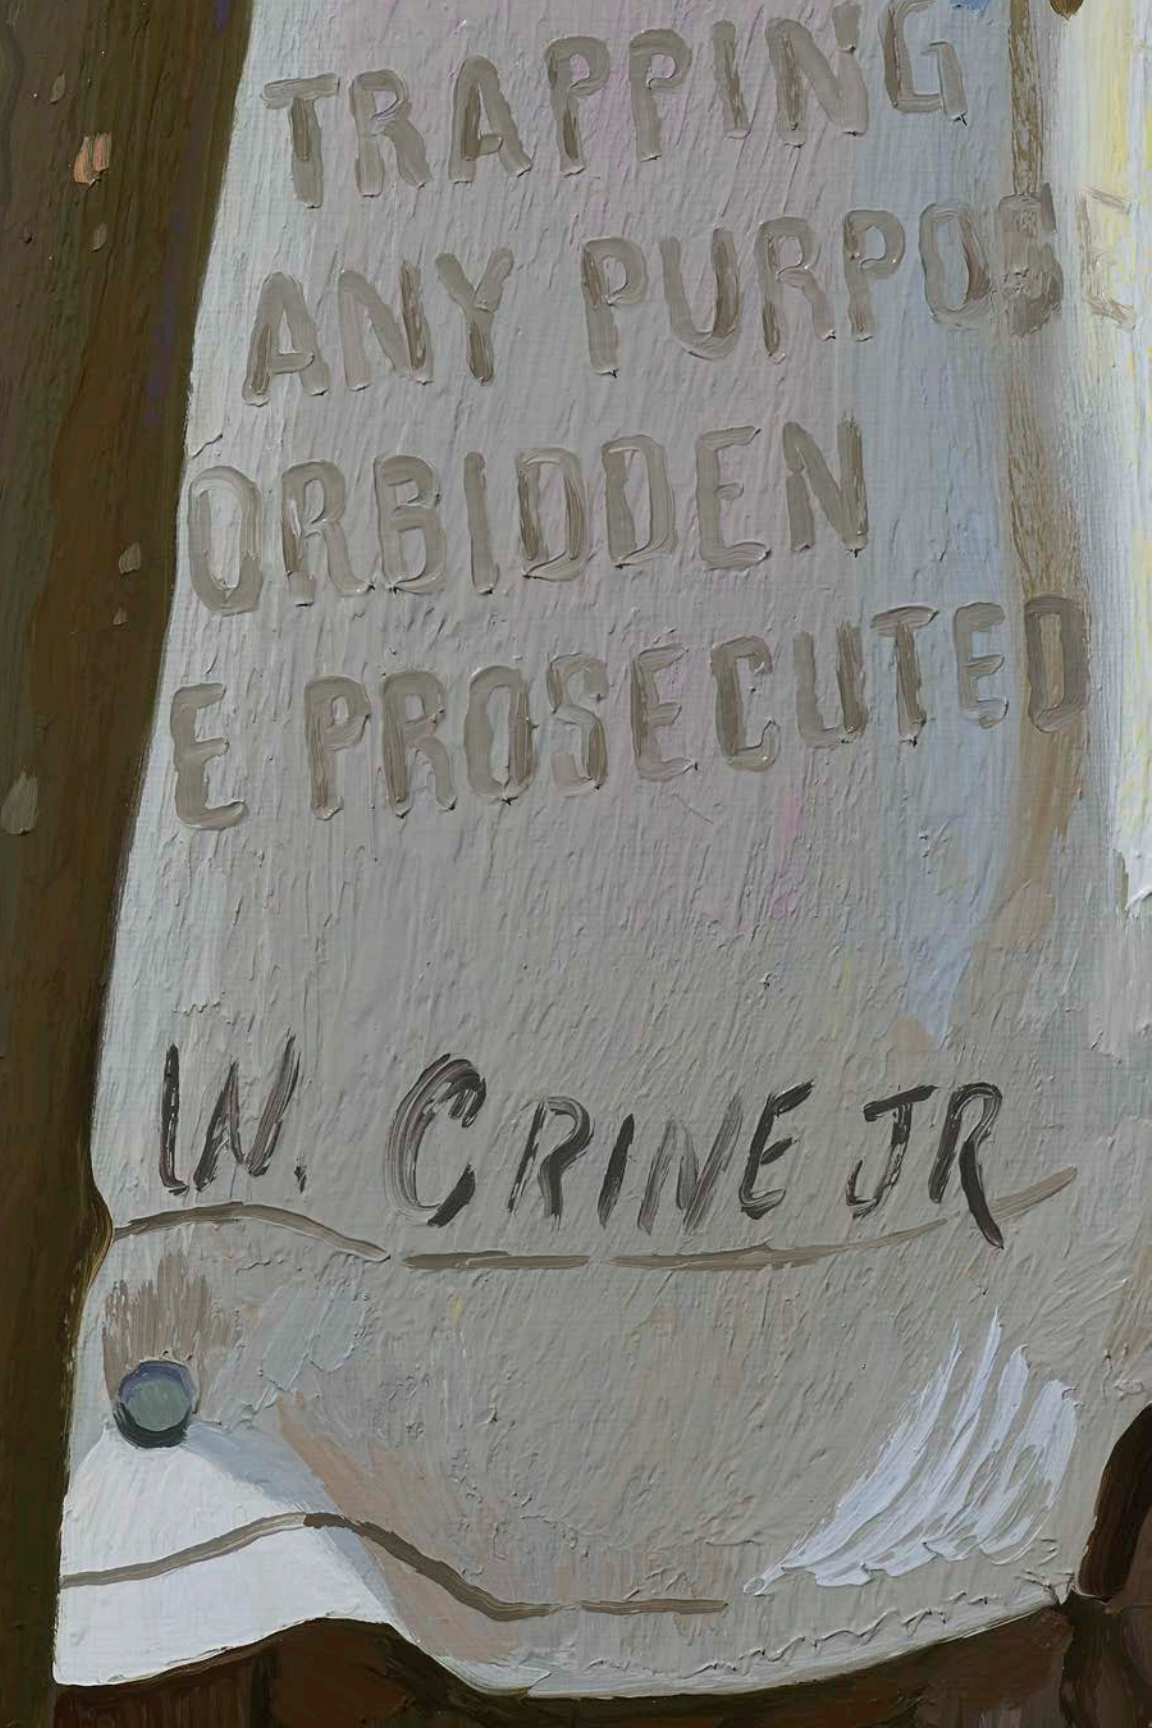 TRAPPING
ANY PURPOSE
ORBIDDEN
E PROSECUTED
W. CRINE JR